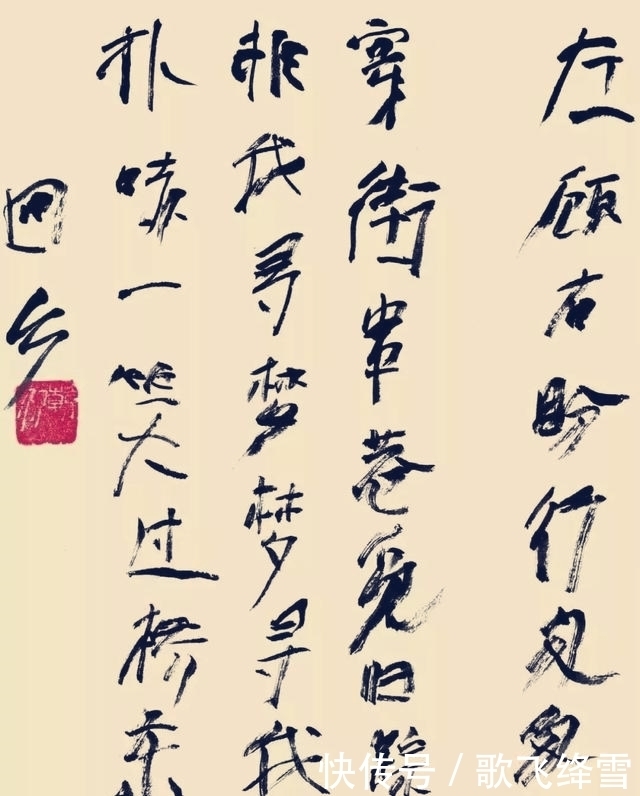 左顾右盼行
穿街串巷觅旧踪
我寻梦梦寻我
扑一笑大过桥东
回乡
快传号 / 歌飞绛雪